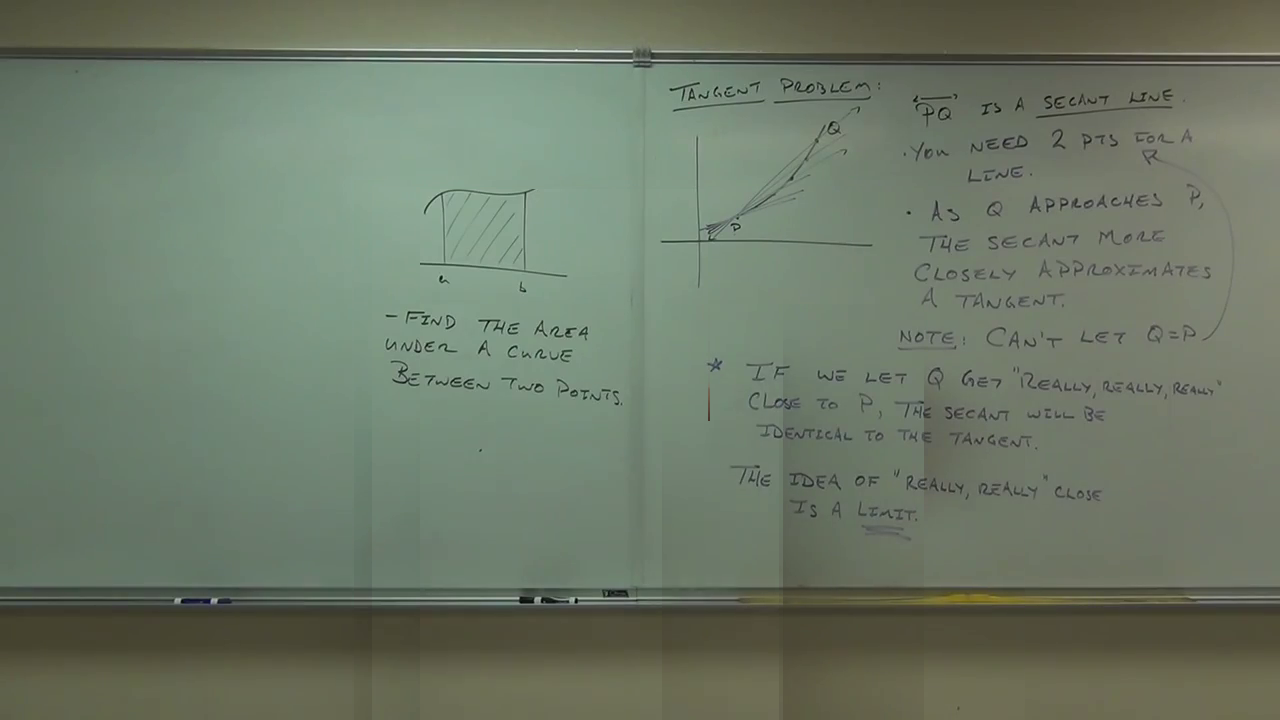 a
b
- FIND THE AREA
UNDER A CURVE
BETWEEN TWO POINTS.
TANGENT PROBLEM:
Q
P
PQ IS A SECANT LINE.
• YOU NEED 2 PTS FOR A
LINE.
• AS Q APPROACHES P,
THE SECANT MORE
CLOSELY APPROXIMATES
A TANGENT.
NOTE: CAN'T LET Q=P
* IF WE LET Q GET "REALLY, REALLY, REALLY"
CLOSE TO P, THE SECANT WILL BE
IDENTICAL TO THE TANGENT.
THE IDEA OF "REALLY, REALLY" CLOSE
IS A LIMIT.